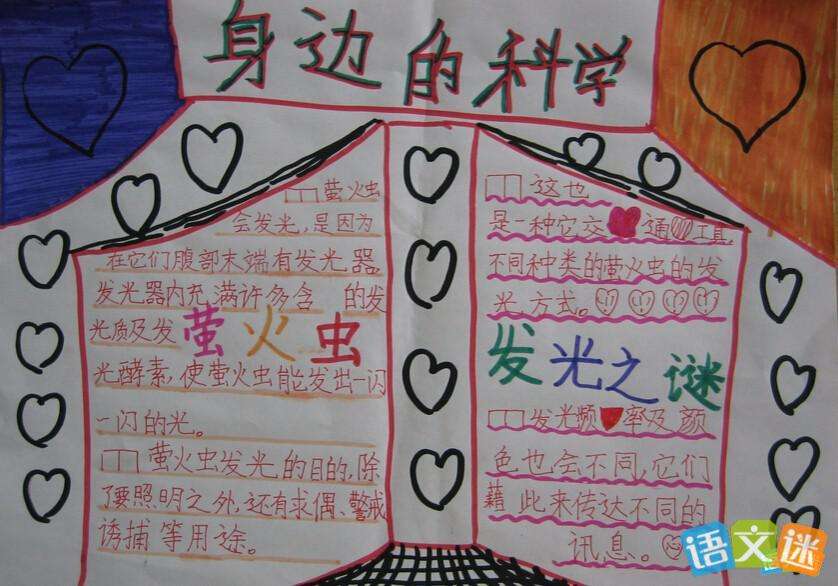 身边的科学
萤火虫
会发光,是因为
在它们腹部末端有发光器,
发光器内充满许多含 的发
光质及发
萤火虫
光酵素,使萤火虫能发出一闪
一闪的光。
萤火虫发光的目的,除
了要照明之外,还有求偶、警戒
诱捕等用途。
这也
是一种它交通工具,
不同种类的萤火虫的发
光方式。
发光之谜
发光频率及颜
色也会不同,它们
藉此来传达不同的
讯息。
语文迷